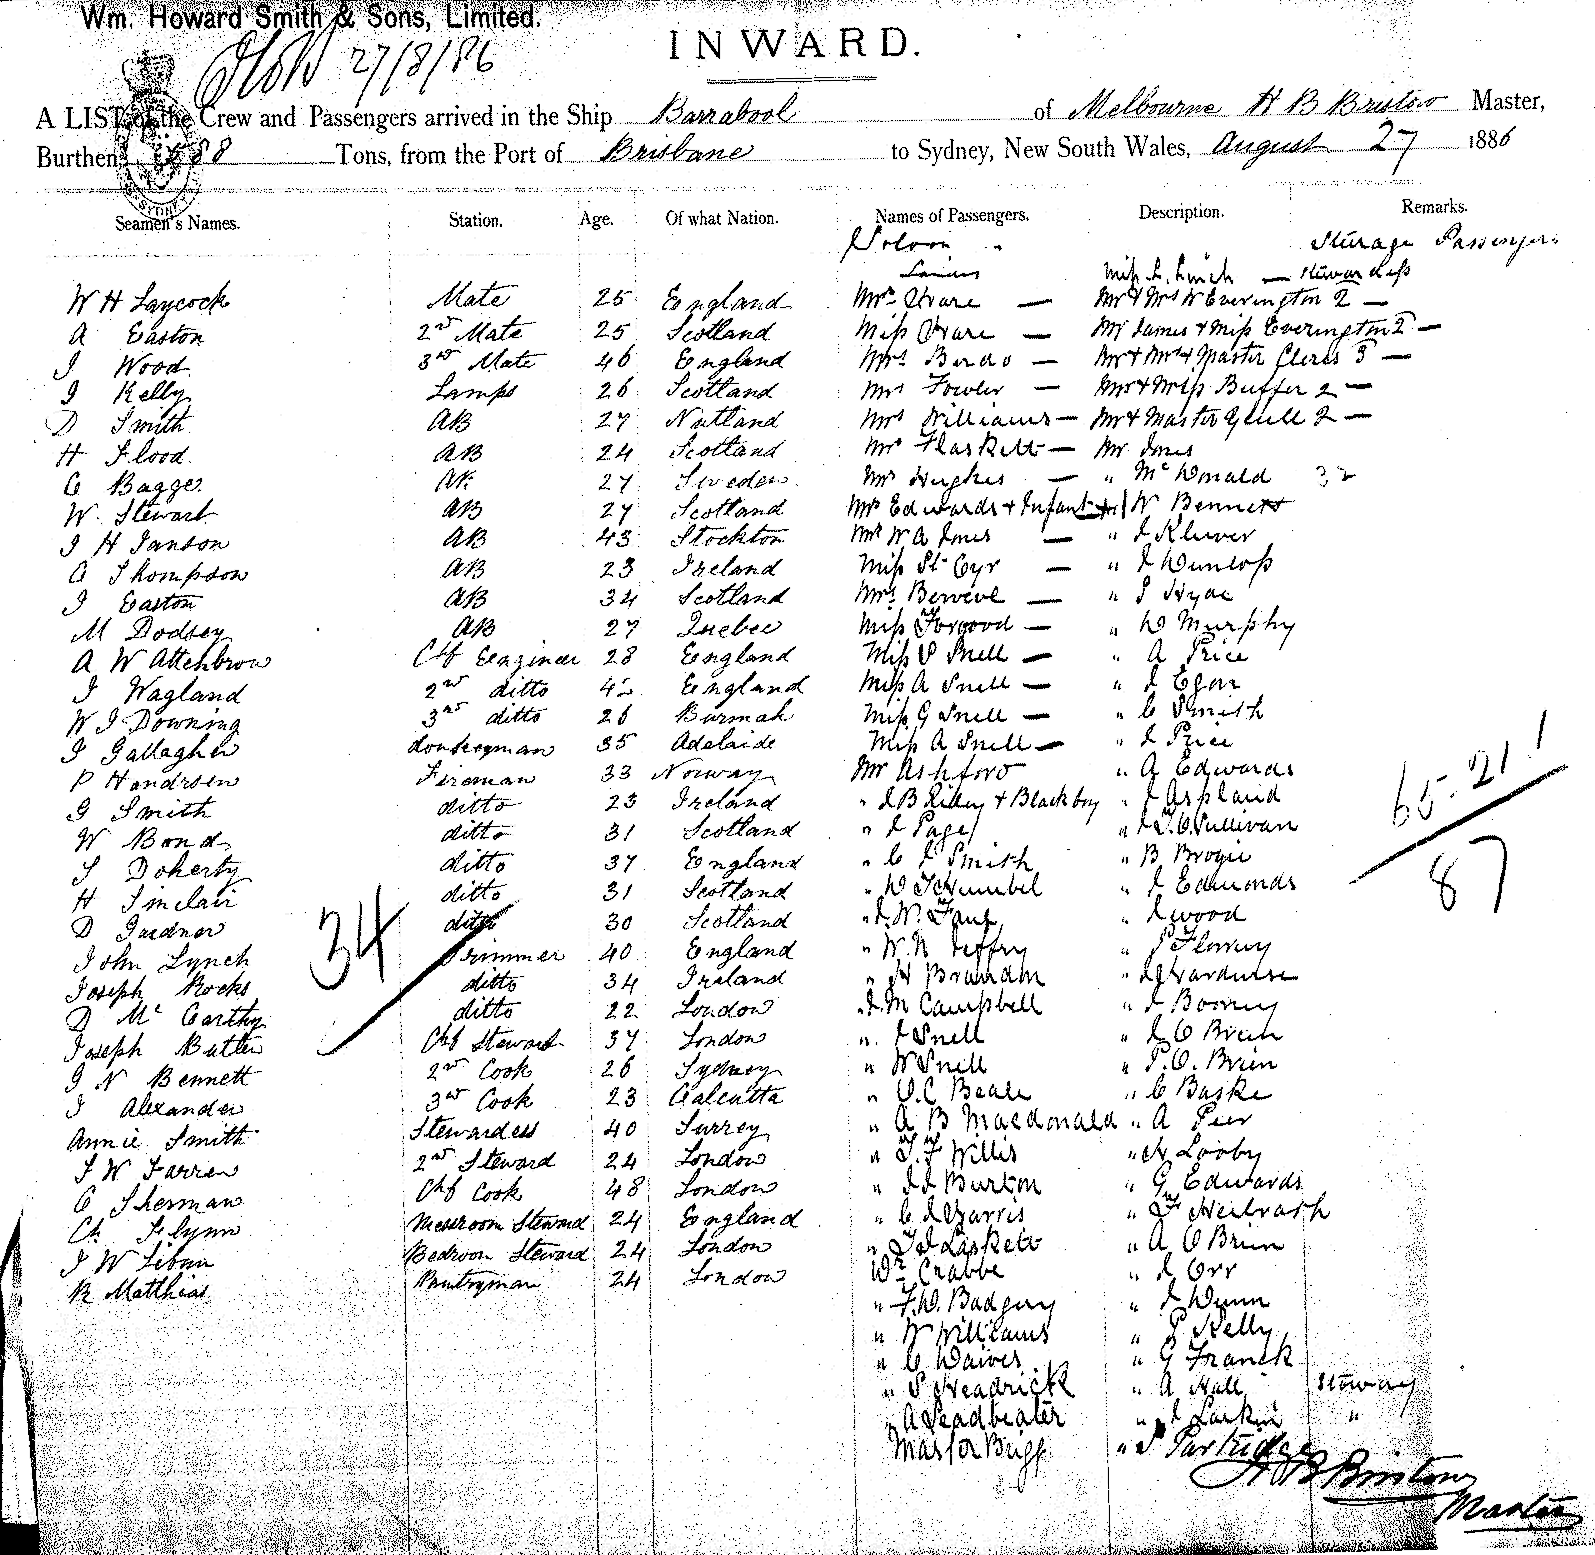 Wm. Howard Smith & Sons, Limited.
27/8/86
INWARD.
A LIST of the Crew and Passengers arrived in the Ship Barrabool of Melbourne H B Bristow Master,
Burthen 88 Tons, from the Port of Brisbane to Sydney, New South Wales, August 27 1886
Seamen's Names. Station. Age. Of what Nation. Names of Passengers. Description. Remarks.
Saloon Sturage Passengers
Miss Stewardess
W H Laycock Mate 25 England Mrs Ware — Mr & Mrs W Everington 2 —
A Easton 2nd Mate 25 Scotland Miss Ware — Mr James & Miss Everington 2 —
J Wood 3rd Mate 46 England Mrs — Mr & Mrs & Master 3 —
J Kelly Lamps 26 Scotland Mrs Fowler — Mr & Miss Buffer 2 —
D Smith AB 27 Mrs Williams — Mr & Master 2 —
H Flood AB 24 Scotland Mrs Flaskett — Mr Jones
C Bagge AB 27 Sweden Mrs Hughes — " McDonald 32
W. Stewart AB 27 Scotland Mrs Edwards & Infant W Bennett
J H Janson AB 43 Stockton Mrs W A Jones — " J Kluver
A Thompson AB 23 Ireland Miss St Cyr — " J Dunlop
J Easton AB 34 Scotland Mrs — " Hyde
M Dodsey AB 27 Quebec Miss Forgood — " D Murphy
A W Attenbrow Chf Eengineer 28 England Miss Snell — " A Price
J Wagland 2nd ditto 42 England Miss A Snell — " J Egan
W J Downing 3rd ditto 26 Burmah Miss G Snell — " C Smith
J Gallagher donkeyman 35 Adelaide Miss A Snell — " J Price
P Handrsen Fireman 33 Norway Mr Ashford " A Edwards
G Smith ditto 23 Ireland " J B Riley & Blackboy " J Aspland
W Bond ditto 31 Scotland " J Page " J. O. Sullivan
J Doherty ditto 37 England " C J Smith " B Brogie
H Sinclair ditto 31 Scotland " " J Edmonds
D Gardner ditto 30 Scotland " J. W. " J Wood
John Lynch Trimmer 40 England " W. N Jeffry " Flowery
Joseph Rocks ditto 34 Ireland " H Brandon "
D McCarthy ditto 22 London " J. M Campbell " J Booney
Joseph Butler Chf Steward 37 London " J Snell " J O Brien
J N Bennett 2nd Cook 26 Sydney " W Snell " P. O. Brien
J Alexander 3rd Cook 23 Calcutta " O. C Beale " C Baske
Annie Smith Stewardess 40 Surrey " A B Macdonald " A Peer
J W Farren 2nd Steward 24 London " T. F Willis " H Looby
C Sherman Chf Cook 48 London " J J Burton " G Edwards
Ch Flynn Messroom Steward 24 England " C J Harris " Heilrath
J W Liban Bedroon Steward 24 London " T J Laskett " A O Brien
R Matthias Pantryman 24 London Wm Crabbe " J Orr
" F. W. Badgery " J Dunn
" W Williams " P Kelly
" C Daives " G Franck
" S Headrick " A Hall Stoway
" A Leadbeater " J Larkin "
Master Bugg " S Partridge
34
65. 21. 1
87
H B Bristow
Master